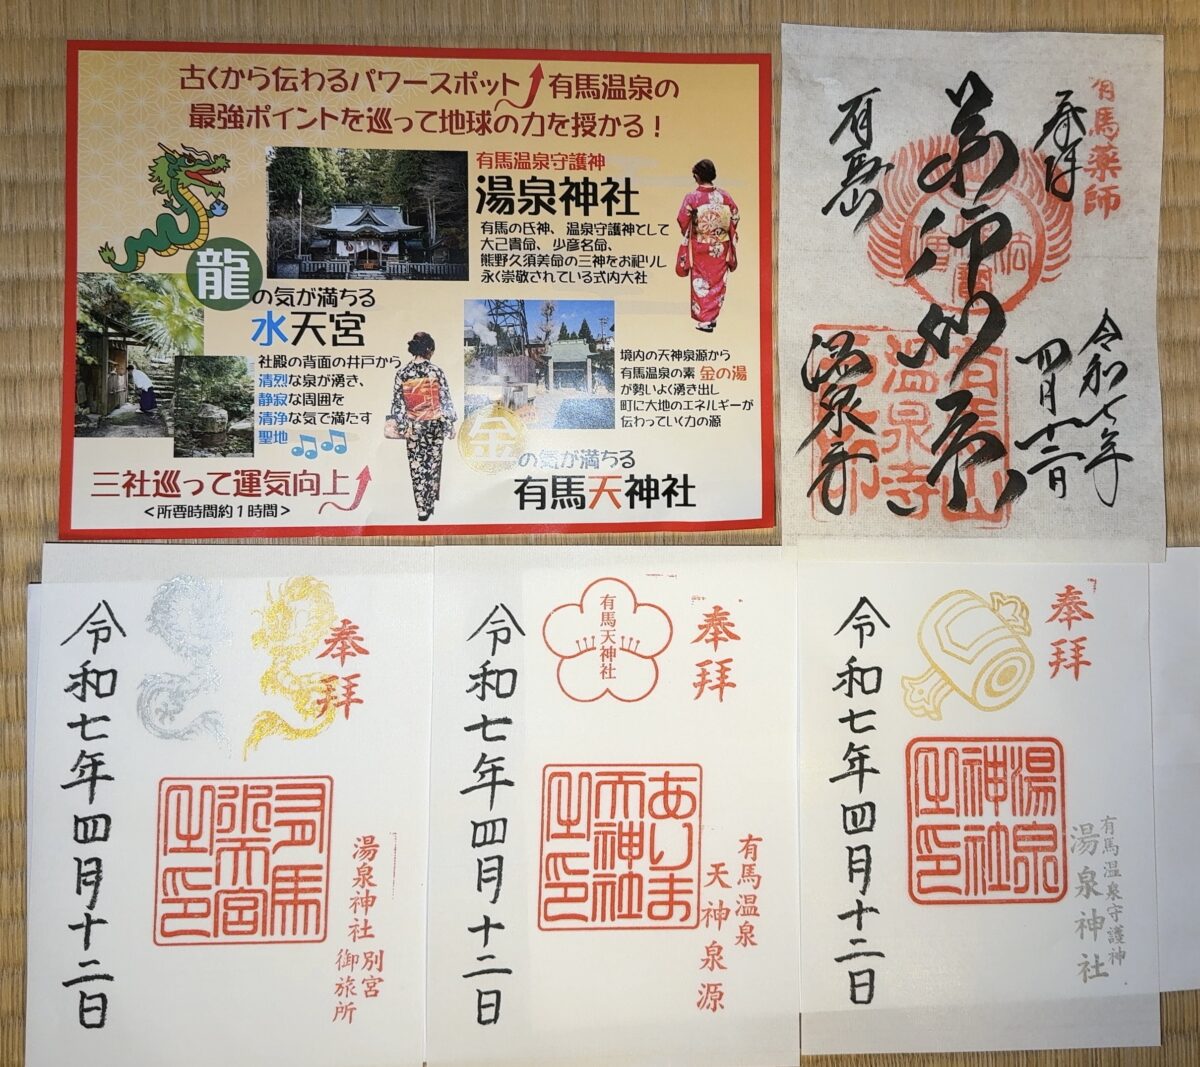 古くから伝わるパワースポット 有馬温泉の
最強ポイントを巡って地球の力を授かる！
有馬温泉守護神
湯泉神社
有馬の氏神、温泉守護神として
大己貴命、少彦名命、
熊野久須美命の三神をお祀りし
永く崇敬されている式内大社
龍の気が満ちる
水天宮
社殿の背面の井戸から
清烈な泉が湧き、
静寂な周囲を
清浄な気で満たす
聖地
境内の天神泉源から
有馬温泉の素 金の湯
が勢いよく湧き出し
町に大地のエネルギーが
伝わっていく力の源
金の気が満ちる
有馬天神社
三社巡って運気向上
＜所要時間約１時間＞
有馬薬師
奉拝
令和七年
四月十二日
有馬山
温泉寺
奉拝
有馬
水天宮
之印
湯泉神社 別宮
御旅所
令和七年四月十二日
奉拝
有馬天神社
ありま
天神社
之印
有馬温泉
天神泉源
令和七年四月十二日
奉拝
湯泉
神社
之印
有馬温泉守護神
湯泉神社
令和七年四月十二日